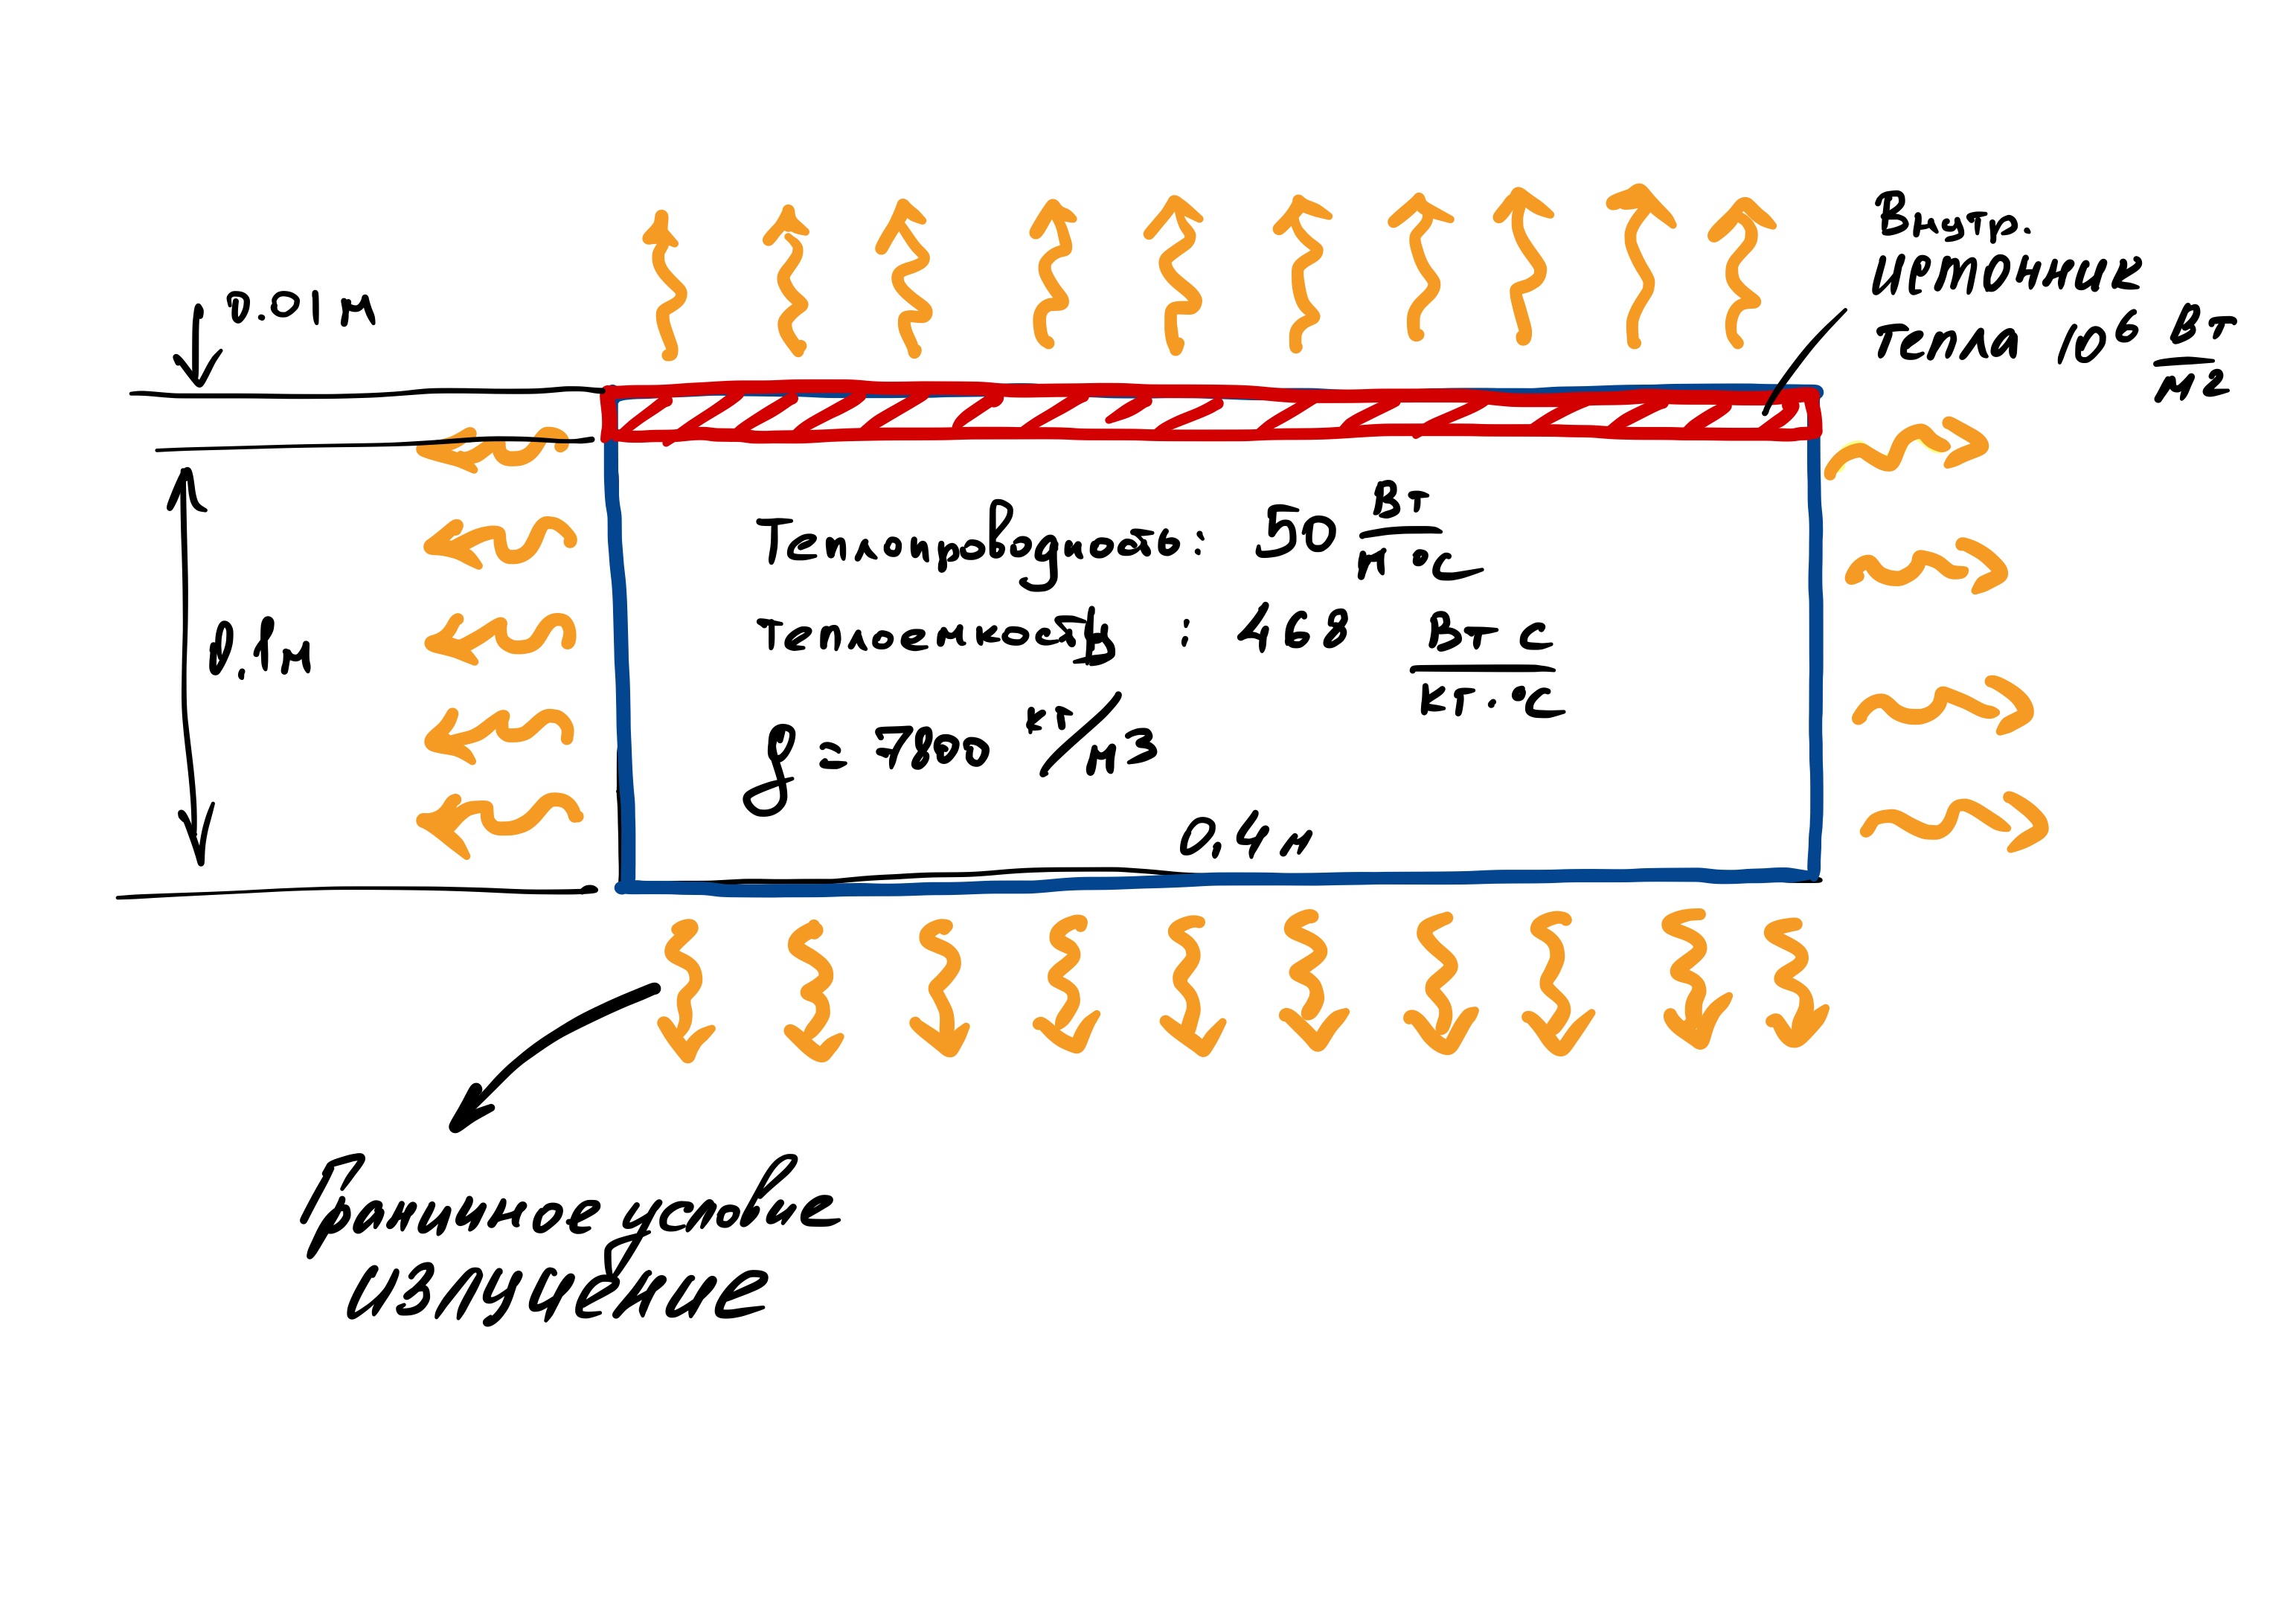 0.01 м
Внутр.
источник
тепла 10⁶ Вт/м²
Теплопроводность: 50 Вт/м °С
0.1м
теплоемкость : 468 Вт с/кг·°С
ρ = 7800 кг/м³
0.4 м
Граничное условие
излучение